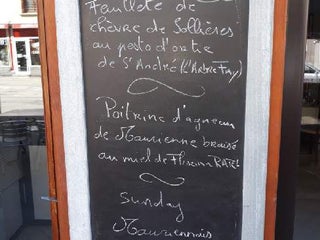 Feuilleté de
chèvre de Sollières
au pesto d'ortie
de St André (L'Arbre Fay)
Poitrine d'agneau
de Maurienne braisé
au miel de
Sunday
Mauriennais